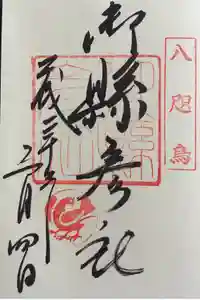 八咫烏
御縣彦社
平成三十年
月四日